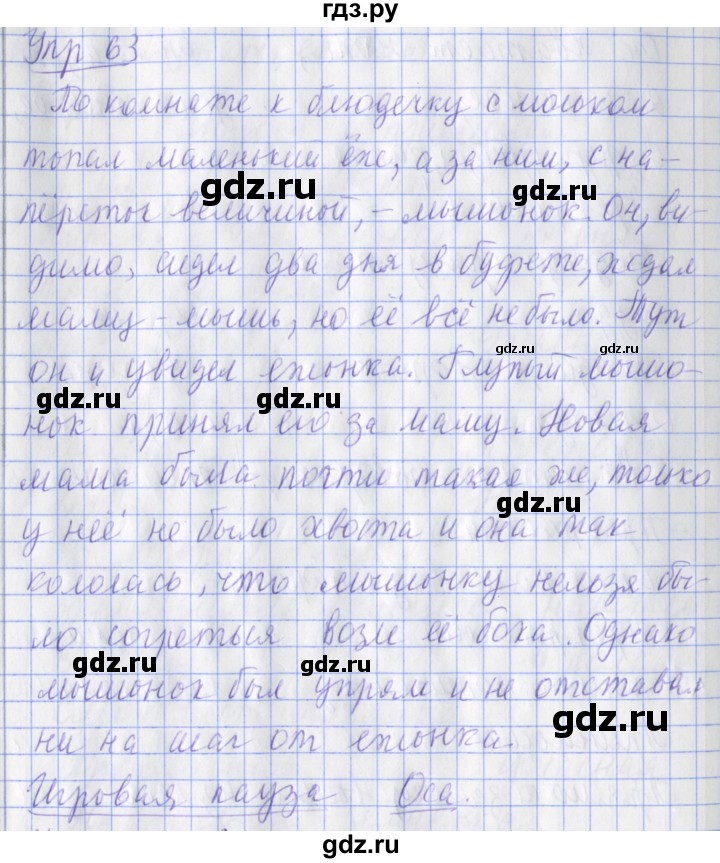 гдз.ру
Упр 63
По комнате к блюдечку с молоком
топал маленький ёж, а за ним, с на-
пёрсток величиной, - мышонок. Он, ви-
димо, сидел два дня в буфете, ждал
маму-мышь, но её всё не было. Тут
он и увидел ежонка. Глупый мышо-
нок принял его за маму. Новая
мама была почти такая же, только
у неё не было хвоста и она так
кололась, что мышонку нельзя бы-
ло согреться возле её бока. Однако
мышонок был упрям и не отставал
ни на шаг от ежонка.
Игровая пауза Оса.
gdz.ru
gdz.ru
gdz.ru
gdz.ru
gdz.ru
gdz.ru
gdz.ru
gdz.ru
gdz.ru
gdz.ru
gdz.ru
gdz.ru